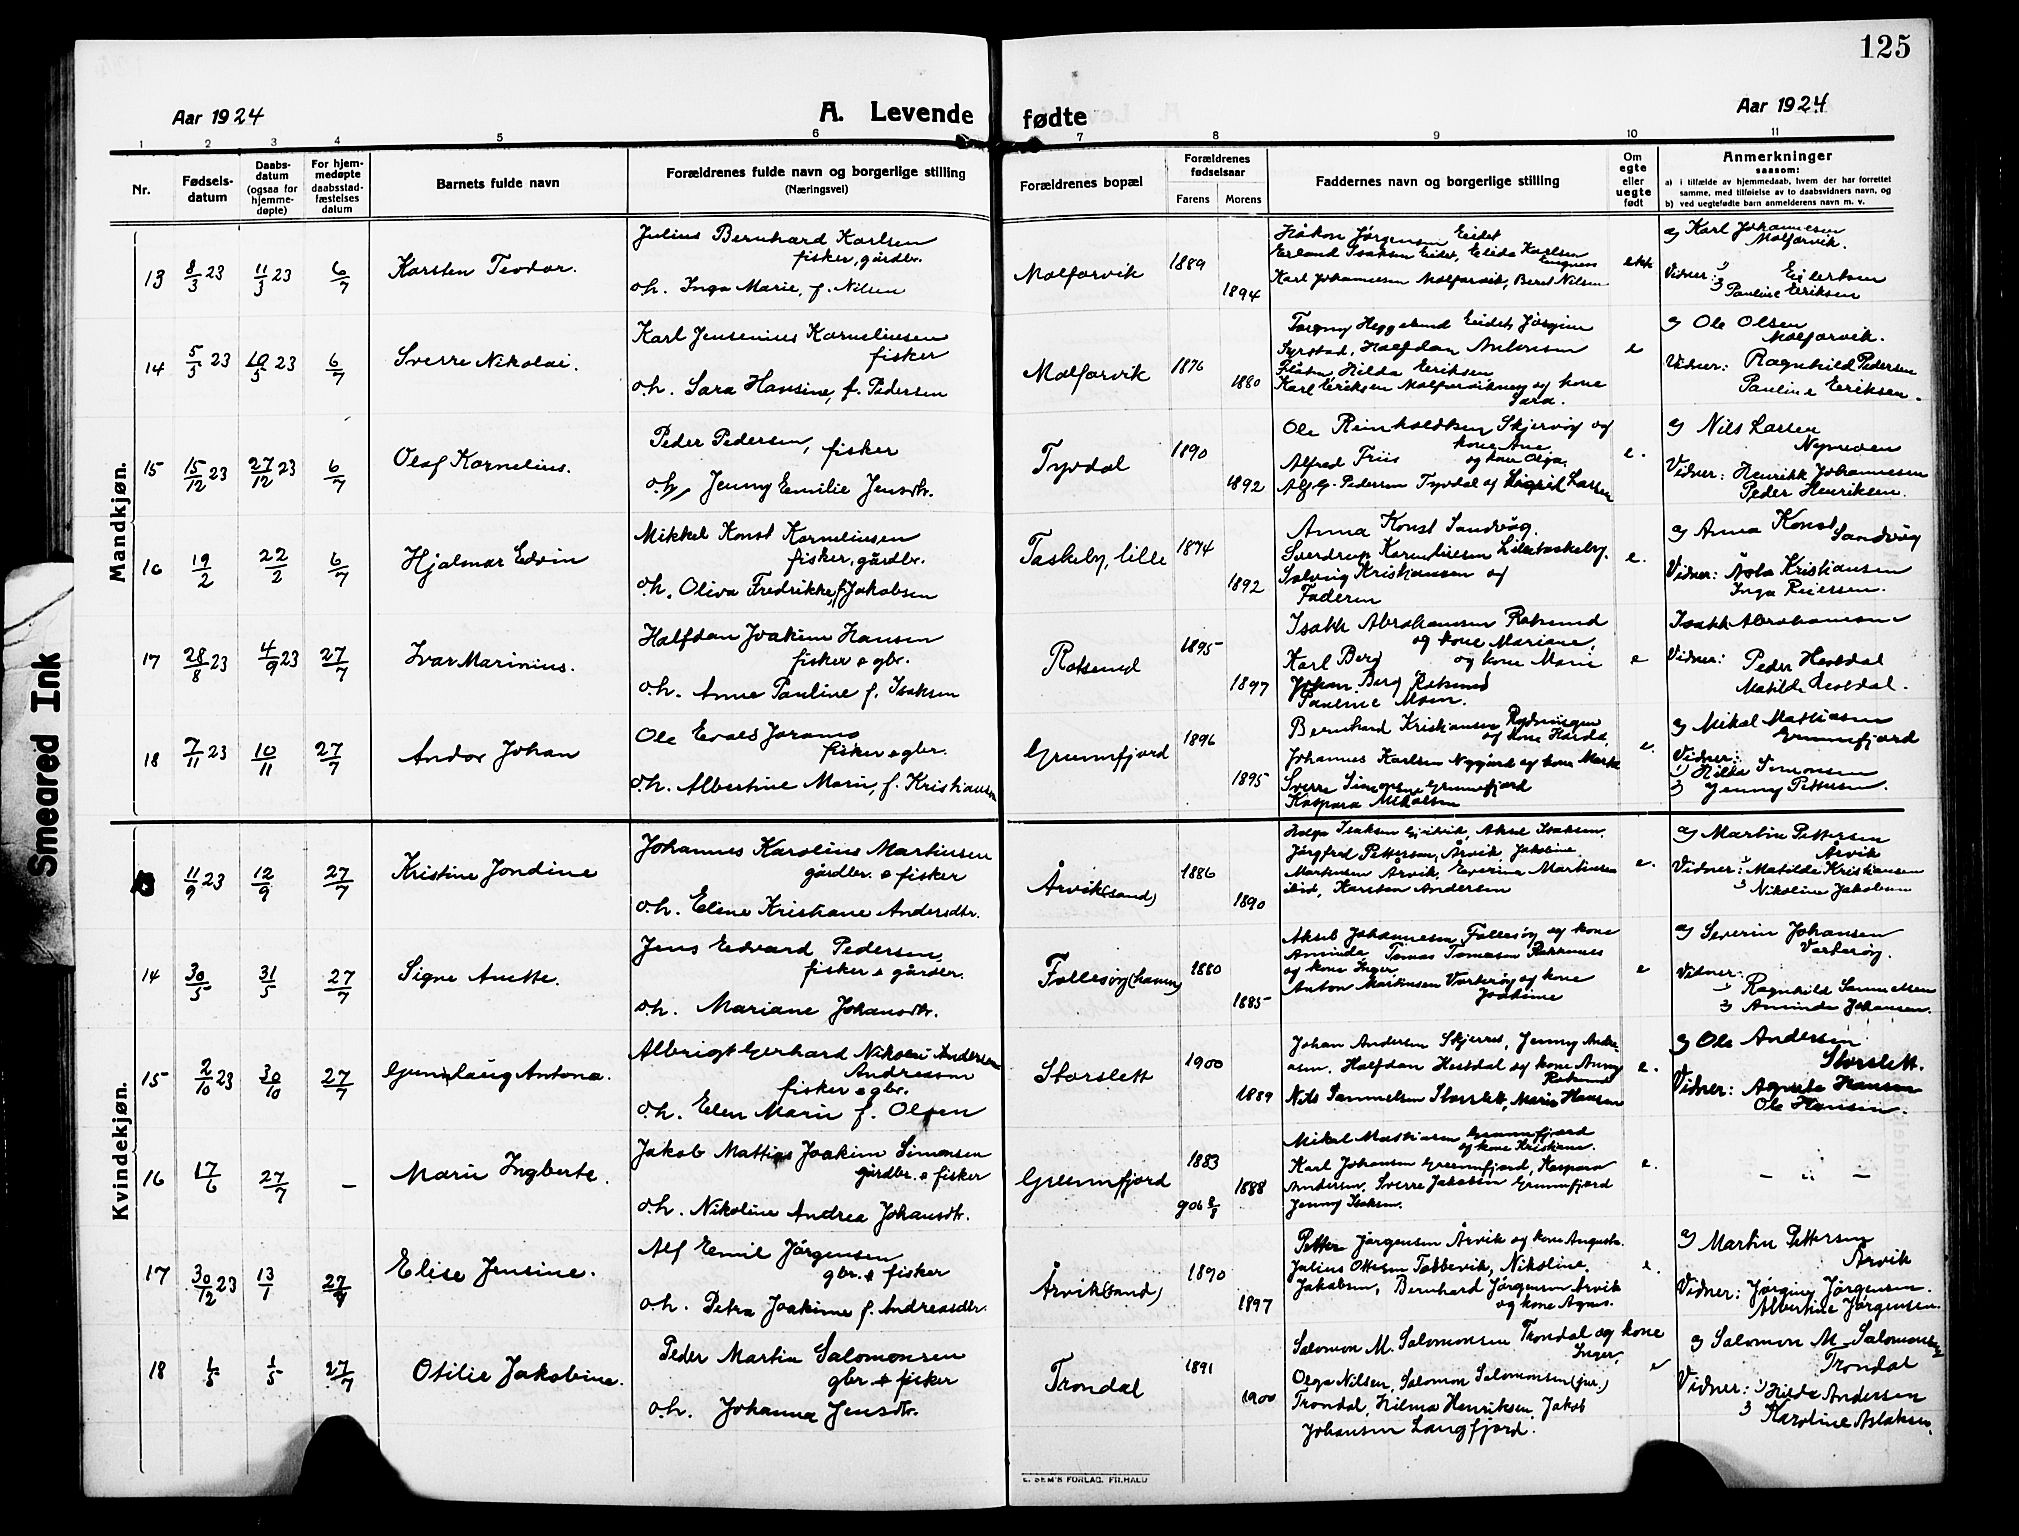 125
Aar 1924
A. Levende fødte
Aar 1924
1 2 3 4 5 6 7 8 9 10 11
Nr.
Fødsels-
datum
Daabs-
datum
(ogsaa for
hjemme-
døpte)
For hjem-
medøpte
daabsstad-
fæstelses
datum
Barnets fulde navn
Forældrenes fulde navn og borgerlige stilling
(Næringsvei)
Forældrenes bopæl
Forældrenes
fødselsaar
Farens Morens
Faddernes navn og borgerlige stilling
Om
egte
eller
uegte
født
Anmerkninger
saasom:
a) i tilfælde av hjemmedaab, hvem der har forrettet
samme, med tilføielse av to daabsvidners navn, og
b) ved uegtefødte barn anmelderens navn m. v.
Mandkjøn.
13 8/3 23 11/3 23 6/7 Karsten Teodor.
Julius Bernhard Karlsen
fisker, gårdbr.
o.h. Inga Marie, f. Nilsen
Molforvik 1889 1894
Håkon Jørgensen Eidet
Erland Isaksen Eidet, Elida Karlsen
Karl Johannesen Molforvik, Beret Nilsen
ekte
a) Karl Johannesen
Molforvik.
Vidner: 1) Eilertsen
2) Pauline Eriksen
14 5/5 23 10/5 23 6/7 Sverre Nikolai.
Karl Jensenius Korneliussen
fisker
o.h. Sara Hansine, f. Pedersen
Molforvik 1876 1880
Torgny Heggelund Eidet, Jørgine
Syrstad, Halfdan Antonsen
Hilda Eriksen
Karl Eriksen Molforvik og kone
Sara.
e
a) Ole Olsen
Molforvik.
Vidner: Ragnhild Pedersen
Pauline Eriksen.
15 15/12 23 27/12 23 6/7 Olaf Kornelius.
Peder Pedersen, fisker
o.h. Jenny Emilie Jensdtr.
Tyvdal 1890 1892
Ole Reinholdtsen Skjervøy og
kone Ane
Alfred Friis og kone Olga,
Alf G. Pedersen Tyvdal og Sigrid Larsen
e.
a) Nils Larsen
Vidner: Henrikk Johannesen
Peder Henriksen.
16 19/2 22/2 6/7 Hjalmar Edvin
Mikkel Konst Korneliussen
fisker, gårdbr.
o.h. Oliva Fredrikke, f. Jakobsen
Taskeby, lille 1874 1892
Anna Konst Sandvåg.
Sverdrup Korneliussen Lilletaskeby.
Solveig Kristiansen og
Faderen
e.
a) Anna Konst
Sandvåg
Vidner: Åsta Kristiansen
Inga Reiersen.
17 28/8 23 4/9 23 27/7 Ivar Marinius.
Halfdan Joakim Hansen
fisker o gbr.
o.h. Anne Pauline f. Isaksen
Rotsund 1895 1897
Isakk Abrahamsen Rotsund
og kone Mariane,
Karl Berg og kone Marie
Johan Berg Rotsund
Pauline Moen.
e
Isakk Abrahamsen
Vidner: Peder Hestdal
Matilde Hestdal.
18 7/11 23 10/11 27/7 Andor Johan
Ole Evals Joramo
fisker o gbr.
o.h. Albertine Marie, f. Kristiansen
Grunnfjord 1896 1895
Bernhard Kristiansen Rydningen
og kone Harda,
Johannes Karlsen Nygård og kone Marta
Sverre Simonsen Grunnfjord
Kaspara Mikalsen
e.
a) Mikal Mathiasen
Grunnfjord
Vidner:
1) Hilda Simonsen
2) Jenny Pettersen.
Kvindekjøn.
11/9 23 12/9 27/7 Kristine Jondine
Johannes Karolius Martinsen
gårdbr. o fisker
o.h. Eline Kristiane Andersdtr.
Årvik (sand) 1886 1890
Helga Isaksen Geitvik, Aksel Isaksen,
Jørgfred Pettersen, Årvik, Jakobine
Martinsen Årvik, Everine Martinsen
ibid, Karsten Andersen
e.
a) Martin Pettersen
Årvik
Vidner: 1) Matilde Kristiansen
2) Nikoline Jakobsen
14 30/5 31/5 27/7 Signe Anette.
Jens Edvard Pedersen
fisker o gårdbr.
o.h. Mariane Johansdtr.
Follesøy (havn) 1880 1885
Aksel Johannesen Follesøy og kone
Aminda Tomas Tomasen
og kone Inger
Anton Martinsen Vorterøy og kone
Joakime
e
a) Severin Johansen
Vorterøy.
Vidner:
1) Ragnhild Samuelsen
2) Aminda Johansen.
15 2/10 23 30/10 27/7 Gunnlaug Antona.
Albrigt Gerhard Nikolai Andersen
Andreasen
fisker o gbr.
o.h. Elen Marie f. Olsen
Storslett 1900 1889
Johan Andersen Skjerret, Jenny Andre-
asen, Halfdan Hestdal og kone Anny
Rotsund
Nils Sammelsen Storslett, Marie Hansen
e.
a) Ole Andersen
Storslett.
Vidner: Agnete Hansen
Ole Hansen.
16 17/6 27/7 – Marie Ingberte.
Jakob Mattias Joakim Simonsen
gårdbr. o fisker
o.h. Nikoline Andrea Johansdtr.
Grunnfjord 1883 1888
Mikal Mathiasen Grunnfjord
og kone Kristiane.
Karl Johansen Grunnfjord, Kaspara
Andersen, Sverre Jakobsen Grunnfjord
Jenny Isaksen.
e.
– " –
17 30/12 23 13/1 27/7 Elise Jensine.
Alf Emil Jørgensen
gbr. o fisker
o.h. Petra Joakime f. Andreasdtr.
Årvik (sand) 1890 1897
Petter Jørgensen Årvik og kone Augusta.
Julius Ottesen Tobbevik, Nikoline
Jakobsen, Bernhard Jørgensen Årvik
og kone Agnes.
e.
a) Martin Pettersen
Årvik
Vidner: Jørginy Jørgensen.
Albertine Jørgensen.
18 1/5 1/5 27/7 Otilie Jakobine.
Peder Martin Salomonsen
gbr. o fisker
o.h. Johanna Jensdtr.
Trondal 1891 1900
Salomon M. Salomonsen Trondal og kone
Inger,
Olga Nilsen, Salomon Salomonsen (jur.)
Trondal, Hilma Henriksen, Jakob
Johansen Langfjord.
e
a) Salomon M. Salomonsen
Trondal
Vidner: 1) Hilda Andersen
2) Karoline Aslaksen.
E. SEM'S FORLAG. FR.HALD
Smeared Ink